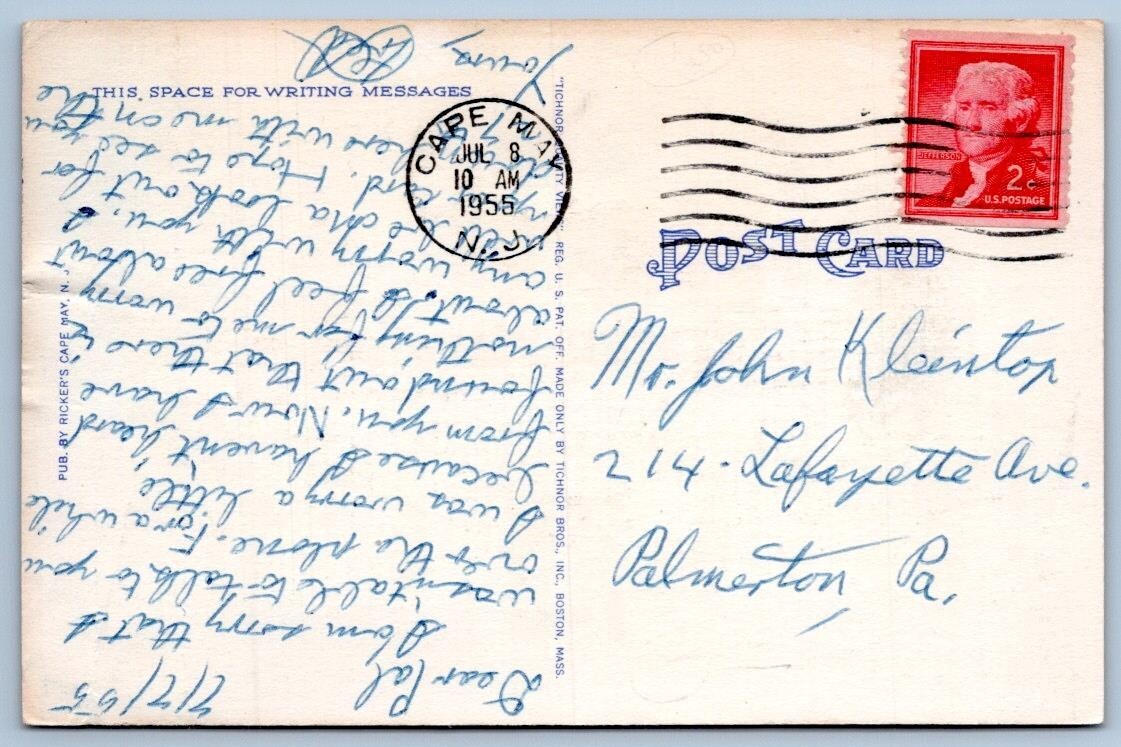 THIS SPACE FOR WRITING MESSAGES
7/7/55
Dear Pal
I am sorry that I
wasn't able to talk to you
over the phone. For a while
I was worry a little
because I havent heard
from you. Now I have
found out that there is
nothing for me to worry
about. So feel free about
any worry with you. I
will look out for
card. Hope to see you
here with me on the
Yours,
Ted
PUB. BY RICKER'S CAPE MAY, N. J.
"TICHNOR QUALITY VIEWS" REG. U. S. PAT. OFF. MADE ONLY BY TICHNOR BROS., INC., BOSTON, MASS.
CAPE MAY
JUL 8
10 AM
1955
N. J.
JEFFERSON
2¢
U.S. POSTAGE
POST CARD
Mr. John Kleintop
214 - Lafayette Ave.
Palmerton, Pa.